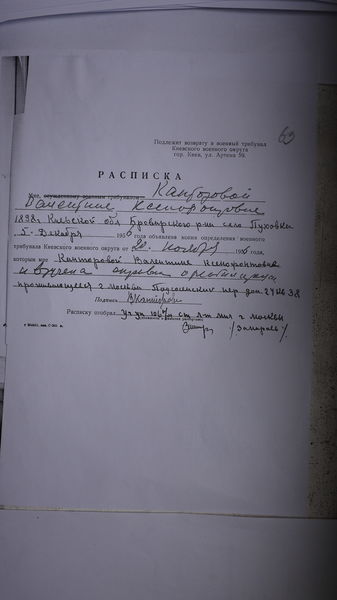 69
Подлежит возврату в военный трибунал
Киевского военного округа
гор. Киев, ул. Артема 59.
РАСПИСКА
Мне, осужденному военным трибуналом
Валентине Ксенофонтовне
1898 г Киевской обл Броварского р-на село Пуховка
5 Декабря 1956 года объявлена копия определения военного
трибунала Киевского военного округа от 20 ноября 1956 года,
которым мне Канторовой Валентине Ксенофонтовне
и вручена справка о реабилитации
проживающей г Москва пер дом 24 кв 38
Подпись ВКанторова
Расписку отобрал Уч уп 106 го от м-л мил г москвы